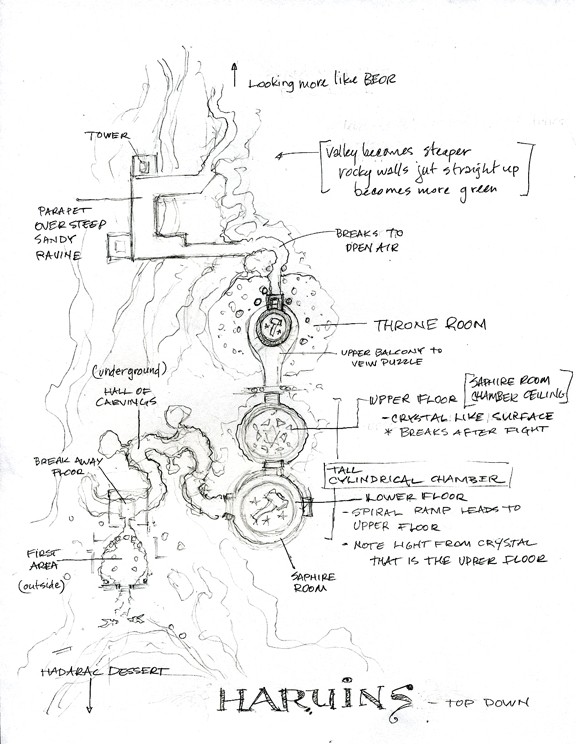 Looking more like BEOR
TOWER
Valley becomes steeper
rocky walls jut straight up
becomes more green
PARAPET
OVER STEEP
SANDY
RAVINE
BREAKS TO
OPEN AIR
THRONE ROOM
UPPER BALCONY TO
VEIW PUZZLE
(underground)
HALL OF
CARVINGS
UPPER FLOOR
SAPHIRE ROOM
CHAMBER CEILING
- CRYSTAL LIKE SURFACE
* BREAKS AFTER FIGHT
BREAK AWAY
FLOOR
TALL
CYLINDRICAL CHAMBER
LOWER FLOOR
- SPIRAL RAMP LEADS TO
UPPER FLOOR
- NOTE LIGHT FROM CRYSTAL
THAT IS THE UPPER FLOOR
FIRST
AREA
(outside)
SAPHIRE
ROOM
HADARAC DESSERT
HARUINS - TOP DOWN